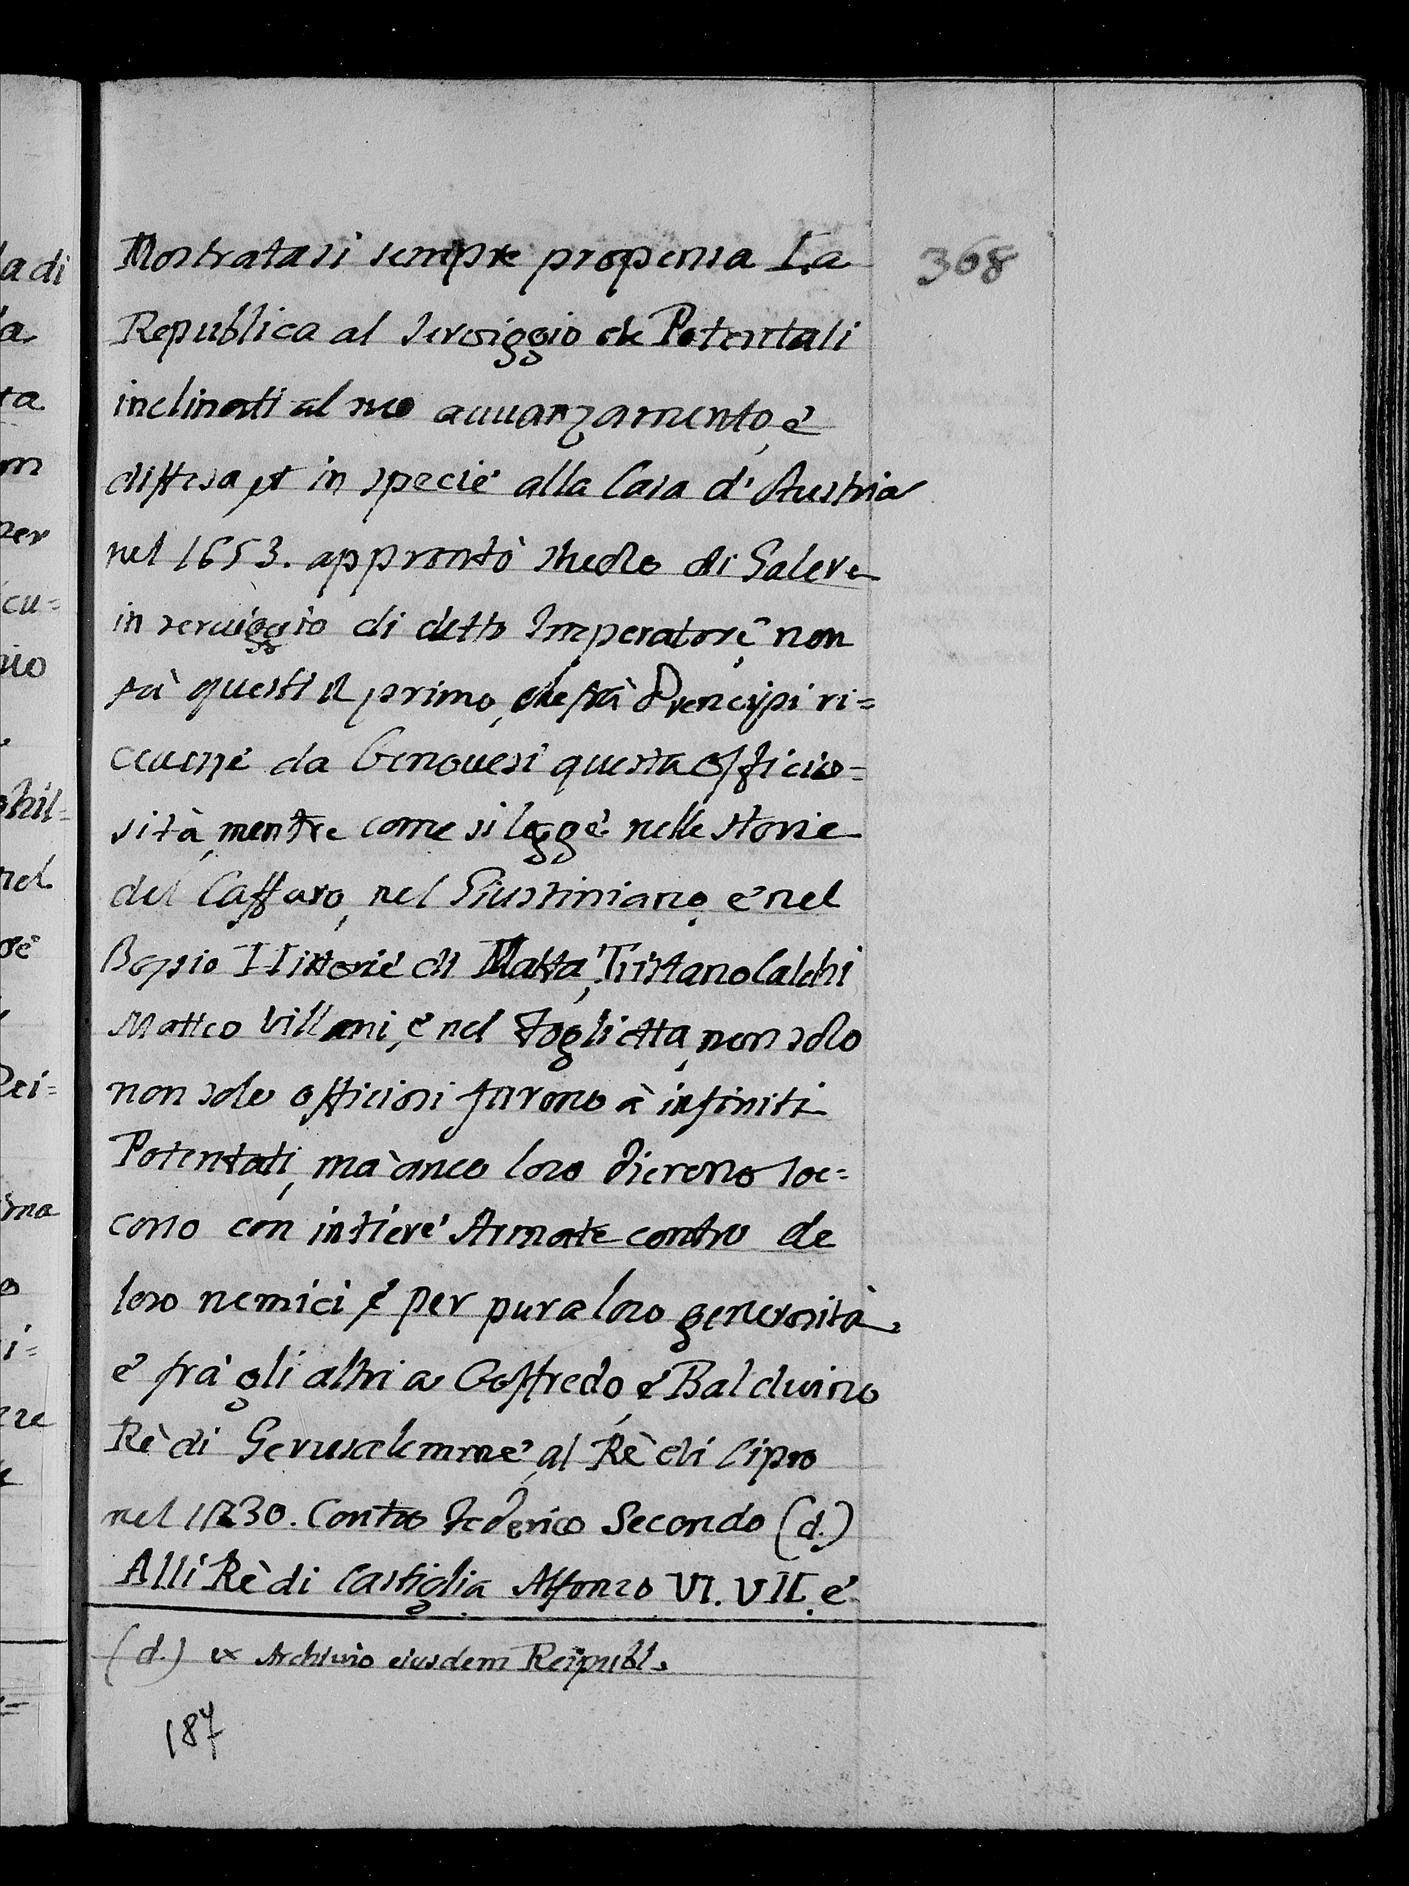 Mostratasi sempre propensa La
368
Republica al serviggio de Potentati
inclinati al suo auuanzamento, e'
diffesa, et in specie alla Casa d'Austria
nel 1653. approntò stuolo di Galere
in seruiggio di detto Imperatore, non
fù questi il primo, che frà Prencipi ri=
ceuesse da Genouesi questa officio=
sità, mentre come si legge nelle storie
del Caffaro, nel Giustiniano, e' nel
Bosio Historie di Malta, Tristano Calchi
Matteo Villani, e' nel Foglietta, non solo
non solo officiosi furono à infiniti
Potentati, mà anco loro dierono soc=
corso con intiere Armate contro de
loro nemici e' per pura loro generosità,
e' frà gli altri a Goffredo, e' Balduino
Rè di Gerusalemme, al Rè di Cipro
nel 1230. Contro Federico Secondo (d.)
Alli Rè di Castiglia Alfonso VI. VII. e'
(d.) ex Archivio eiusdem Reipubl.
187
la di
la
ta
om
per
cu=
nio
phil=
nel
Rei=
i=